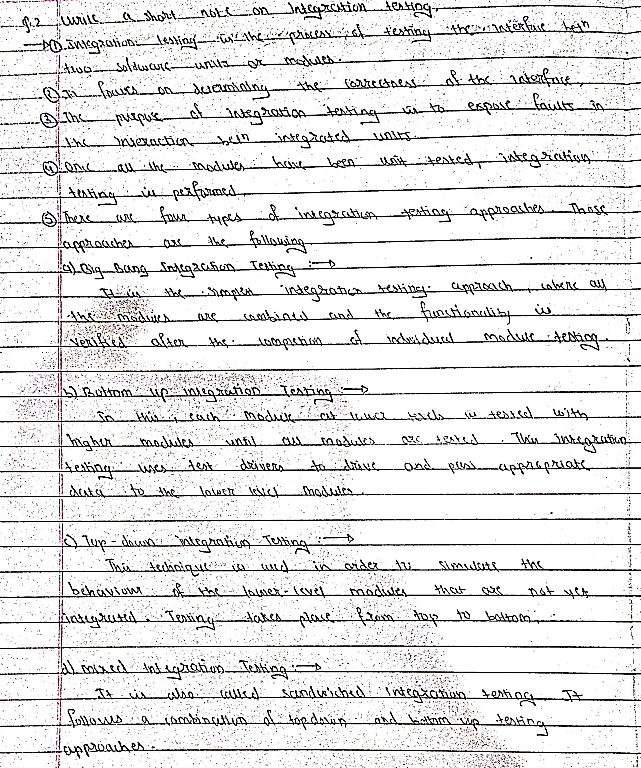 Q.2 Write a short note on Integration testing.
→ ① Integration testing is the process of testing the interface betn
two software units or modules.
② It focus on determining the correctness of the interface.
③ The purpose of integration testing is to expose faults in
the interaction betn integrated units.
④ Once all the modules have been unit tested, integration
testing is performed.
⑤ There are four types of integration testing approaches. Those
approaches are the following.
a) Big Bang Integration Testing :→
It is the simplest integration testing approach, where all
the modules are combined and the functionality is
verified after the completion of individual module testing.
b) Bottom up integration Testing :→
In this, each module at lower levels is tested with
higher modules until all modules are tested. This Integration
testing uses test drivers to drive and pass appropriate
data to the lower level modules.
c) Top-down integration Testing :→
This technique is used in order to simulate the
behaviour of the lower-level modules that are not yet
integrated. Testing takes place from top to bottom.
d) mixed Integration Testing :→
It is also called sandwiched integration testing. It
follows a combination of top down and bottom up testing
approaches.